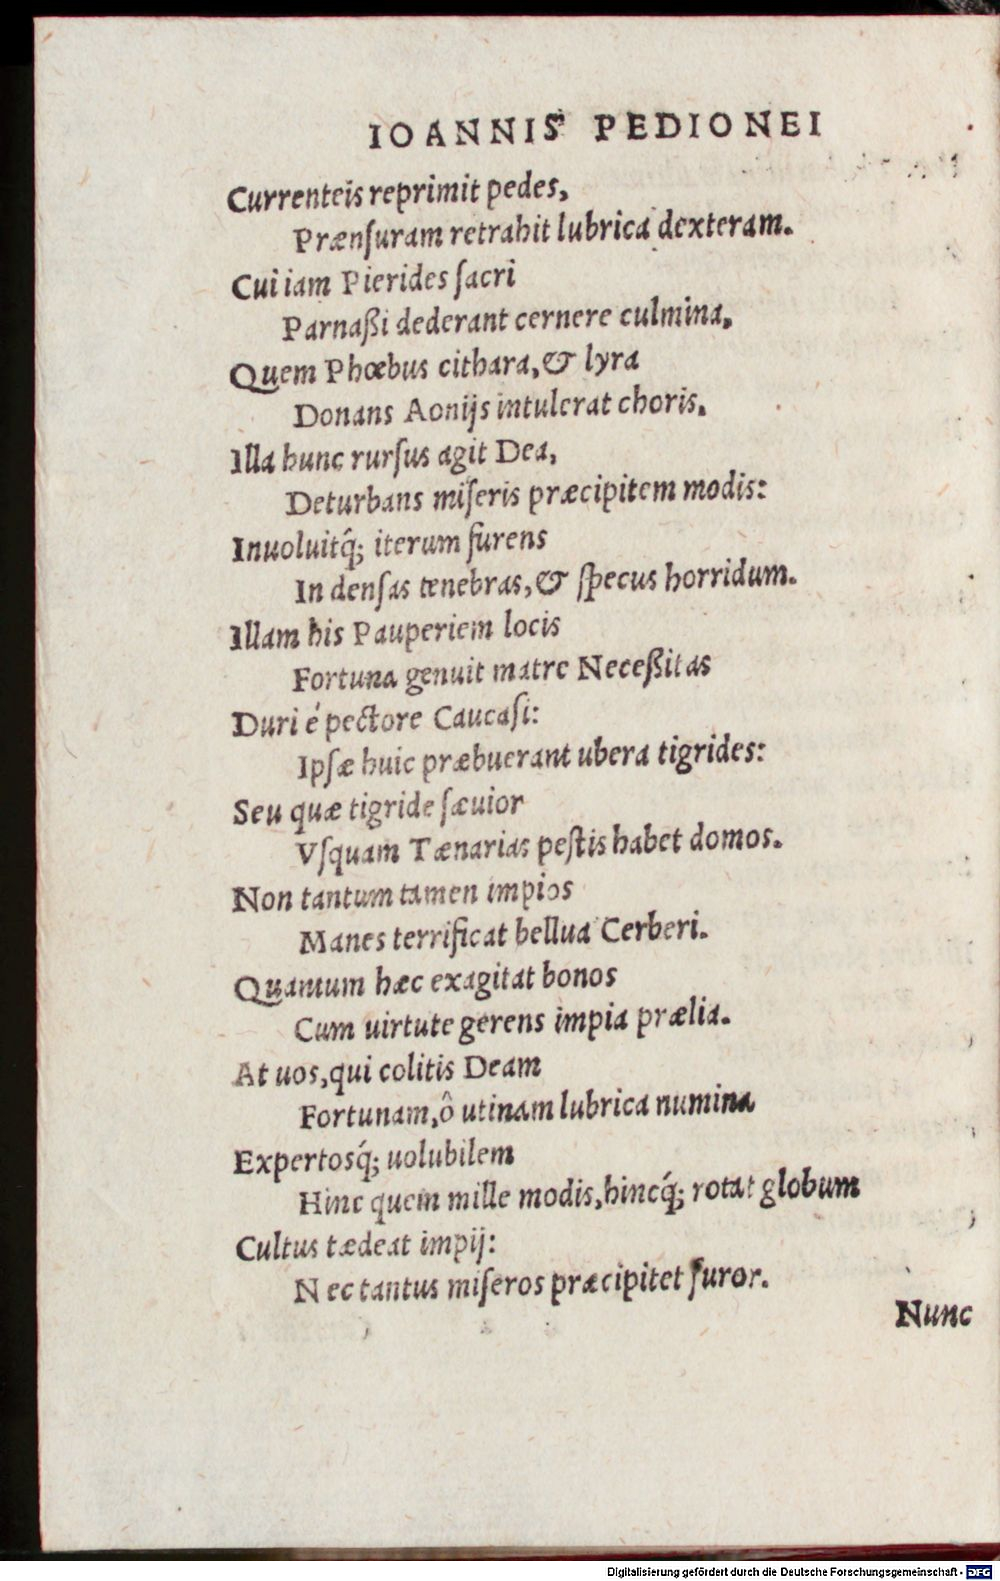 IOANNIS PEDIONEI
Currenteis reprimit pedes,
Prænſuram retrahit lubrica dexteram.
Cui iam Pierides ſacri
Parnaßi dederant cernere culmina,
Quem Phœbus cithara, & lyra
Donans Aonijs intulerat choris,
Illa hunc rurſus agit Dea,
Deturbans miſeris præcipitem modis:
Inuoluitq́; iterum furens
In denſas tenebras, & ſpecus horridum.
Illam his Pauperiem locis
Fortuna genuit matre Neceßitas
Duri é pectore Caucaſi:
Ipſæ huic præbuerant ubera tigrides:
Seu quæ tigride ſæuior
Vſquam Tænarias peſtis habet domos.
Non tantum tamen impios
Manes terrificat bellua Cerberi.
Quantum hæc exagitat bonos
Cum uirtute gerens impia prælia.
At uos, qui colitis Deam
Fortunam, ô utinam lubrica numina
Expertosq́; uolubilem
Hinc quem mille modis, hincq́; rotat globum
Cultus tædeat impij:
Nec tantus miſeros præcipitet furor.
Nunc
Digitalisierung gefördert durch die Deutsche Forschungsgemeinschaft - DFG